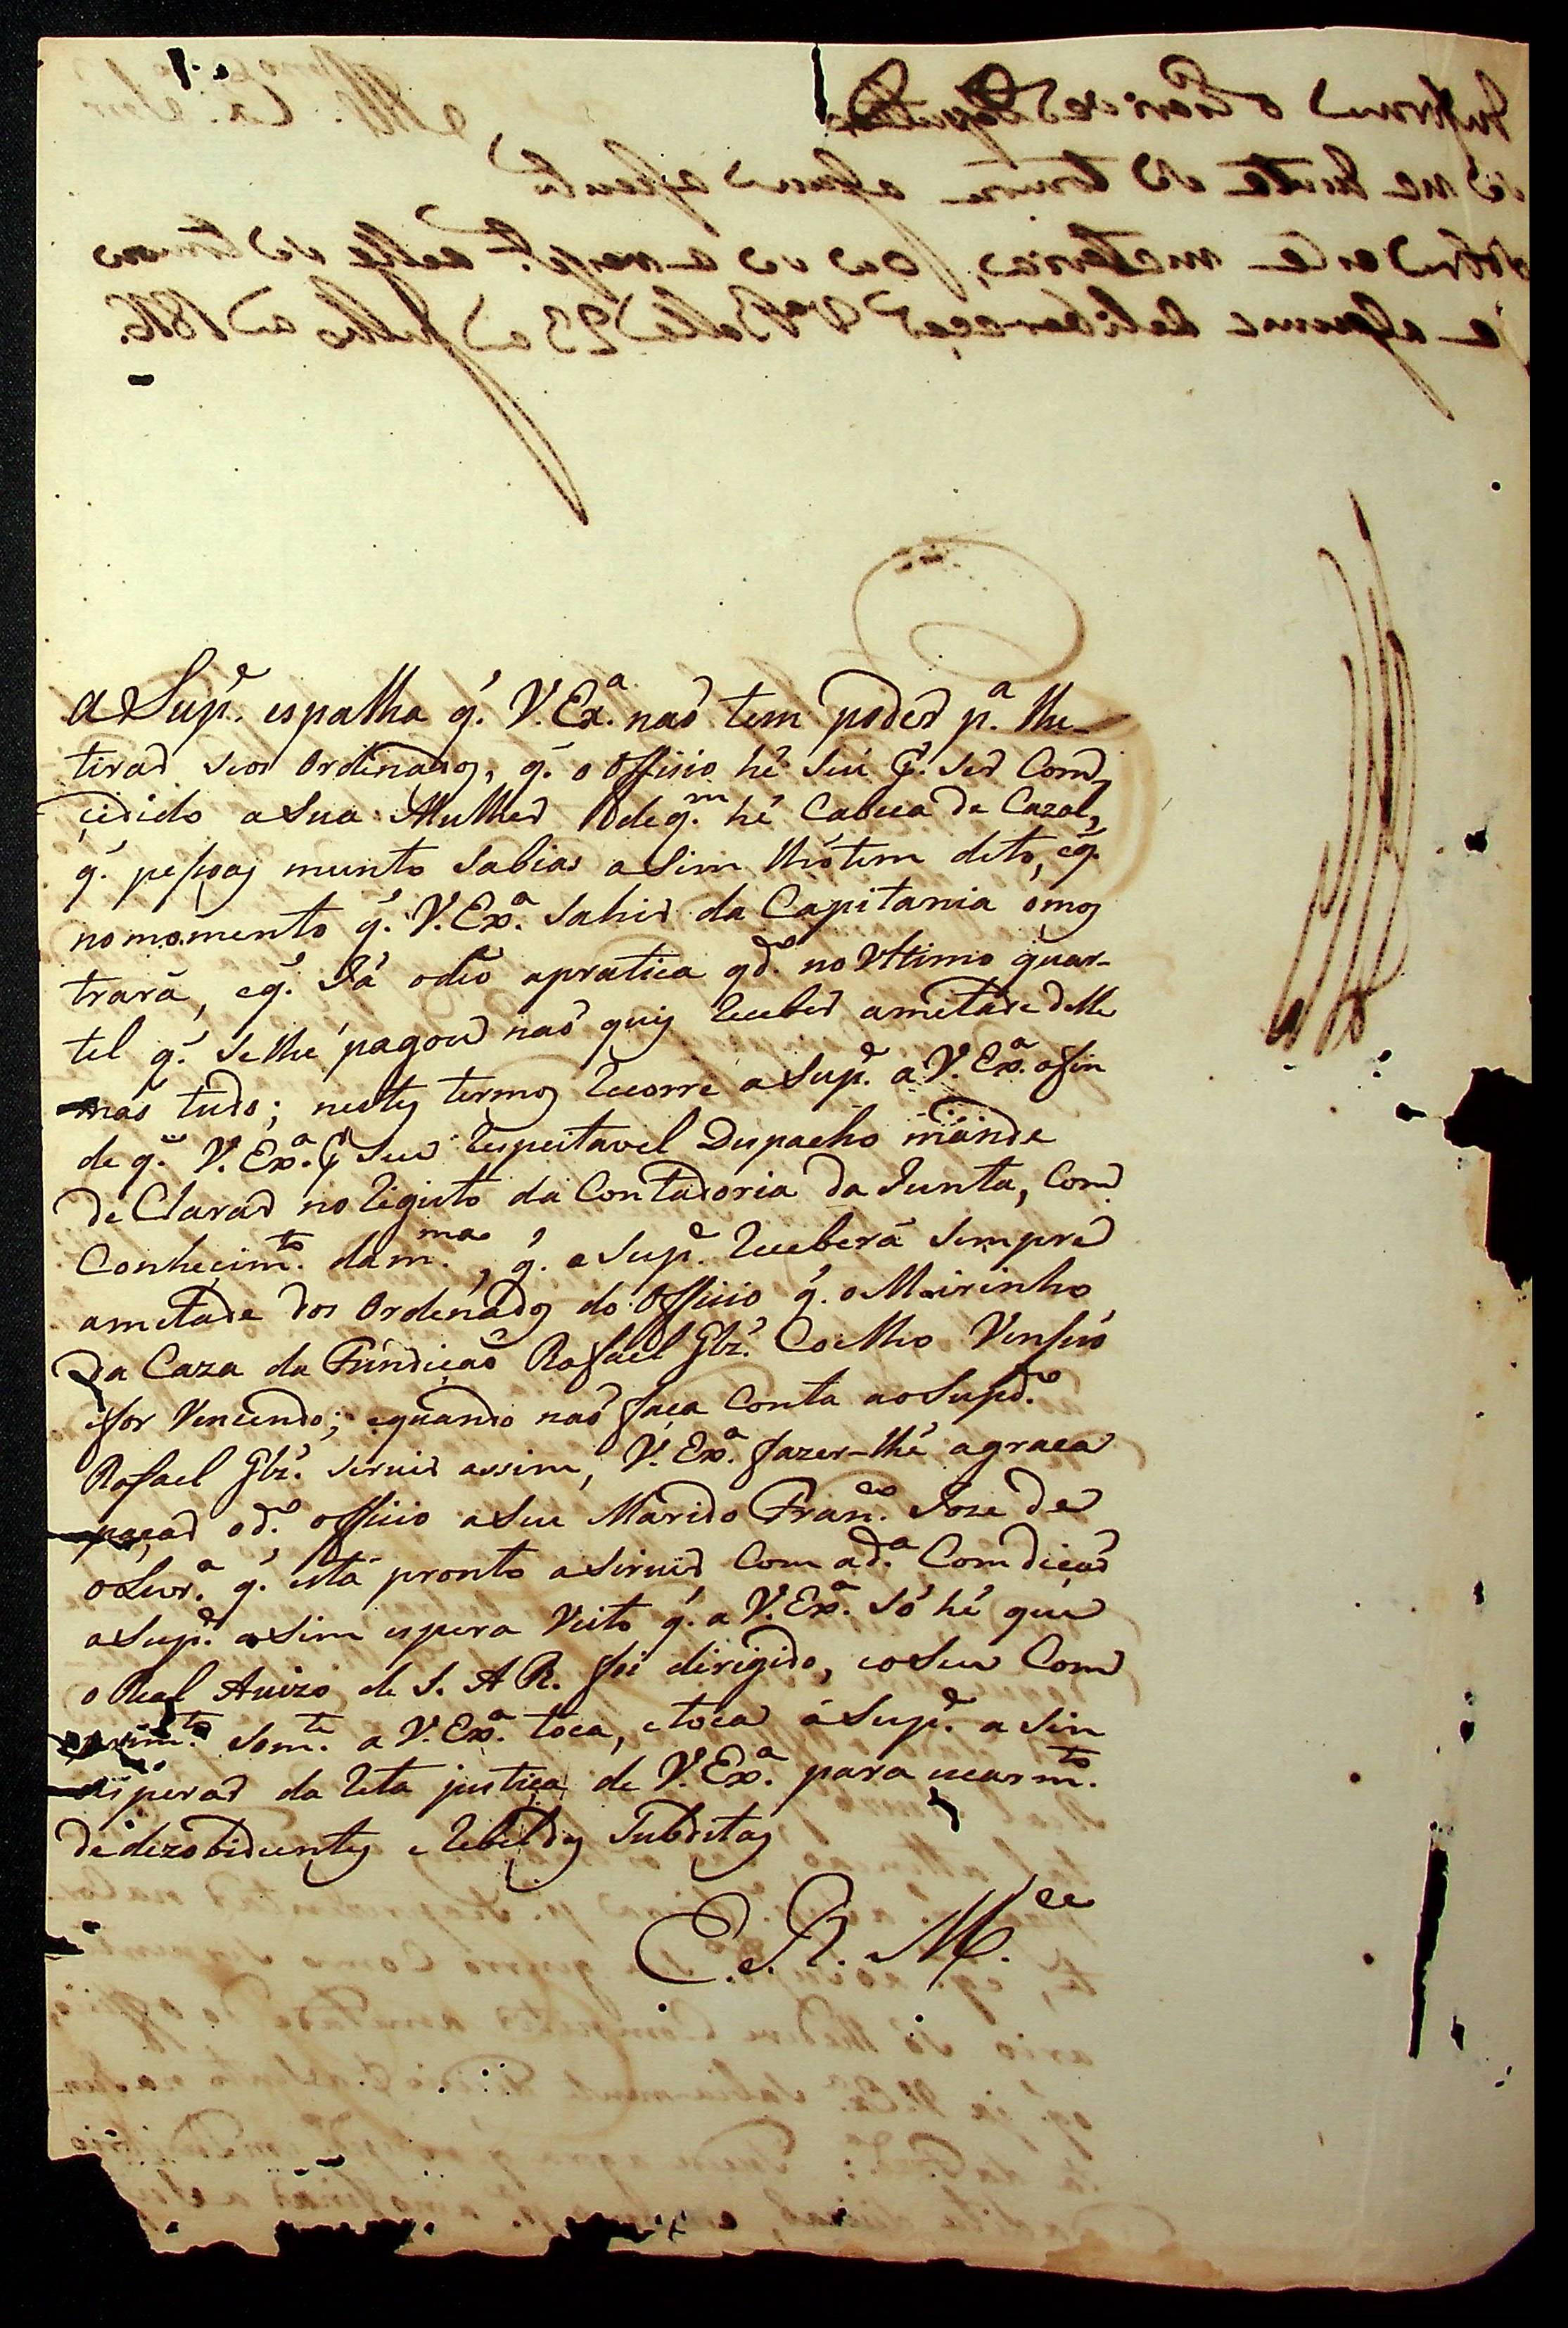 a Sup.e espalha q.' V. Ex.a naõ tem poder p.a lhe
tirar seos Ordenados, q.' o Officio hé seú p.r ser Com,
çidido a Sua Mulher de q.m hé Cabeca de Cazal,
q.' pessoas munto Sabias a Sim lhó tem dito, eq.'
no momento q.' V. Ex.a Sahir da Capitania o mos
trará, eq.' Já odeo apratica qd.o no Ultimo quar-
tel q.' Se lhé pagou naõ quis Receber ametade delle
mas tudo; nestes termos Recorre a Sup.e a V. Ex.a afin
de q.' V. Ex.a p.r Seu Respeitavel Despacho mande
de Clarar no Registo da Contadoria da Junta, Com
Conhecim.to da m.ma, q.' a Sup.e Receberá Sempre
ametade dos Ordenados do Officio q.' o Meirinho
da Caza da Fúndiçaõ Rafael Glz.' Coelho Venseo
e for Vencendo; equando naõ faça Conta ao Supd.o
Rafael Glz.' servir assim, V. Ex.a fazer-lhé agraca
paçar od.o officio a Seu Marido Fran.co Joze de
oLivr.a q.' está pronto a Servir Com ad.a Comdiçaõ
a Sup.e a Sim espera Visto q.' a V. Ex.a Só hé que
o Real Avizo de S. A R. foi dirigido, eo Seu Com
prim.to Som.te a V. Ex.a toca, etoca á Sup.e a Sin
esperar da Reta justiça de V. Ex.a para
de dezobidientes e Rebeldes Subditos
E. R. M.ce